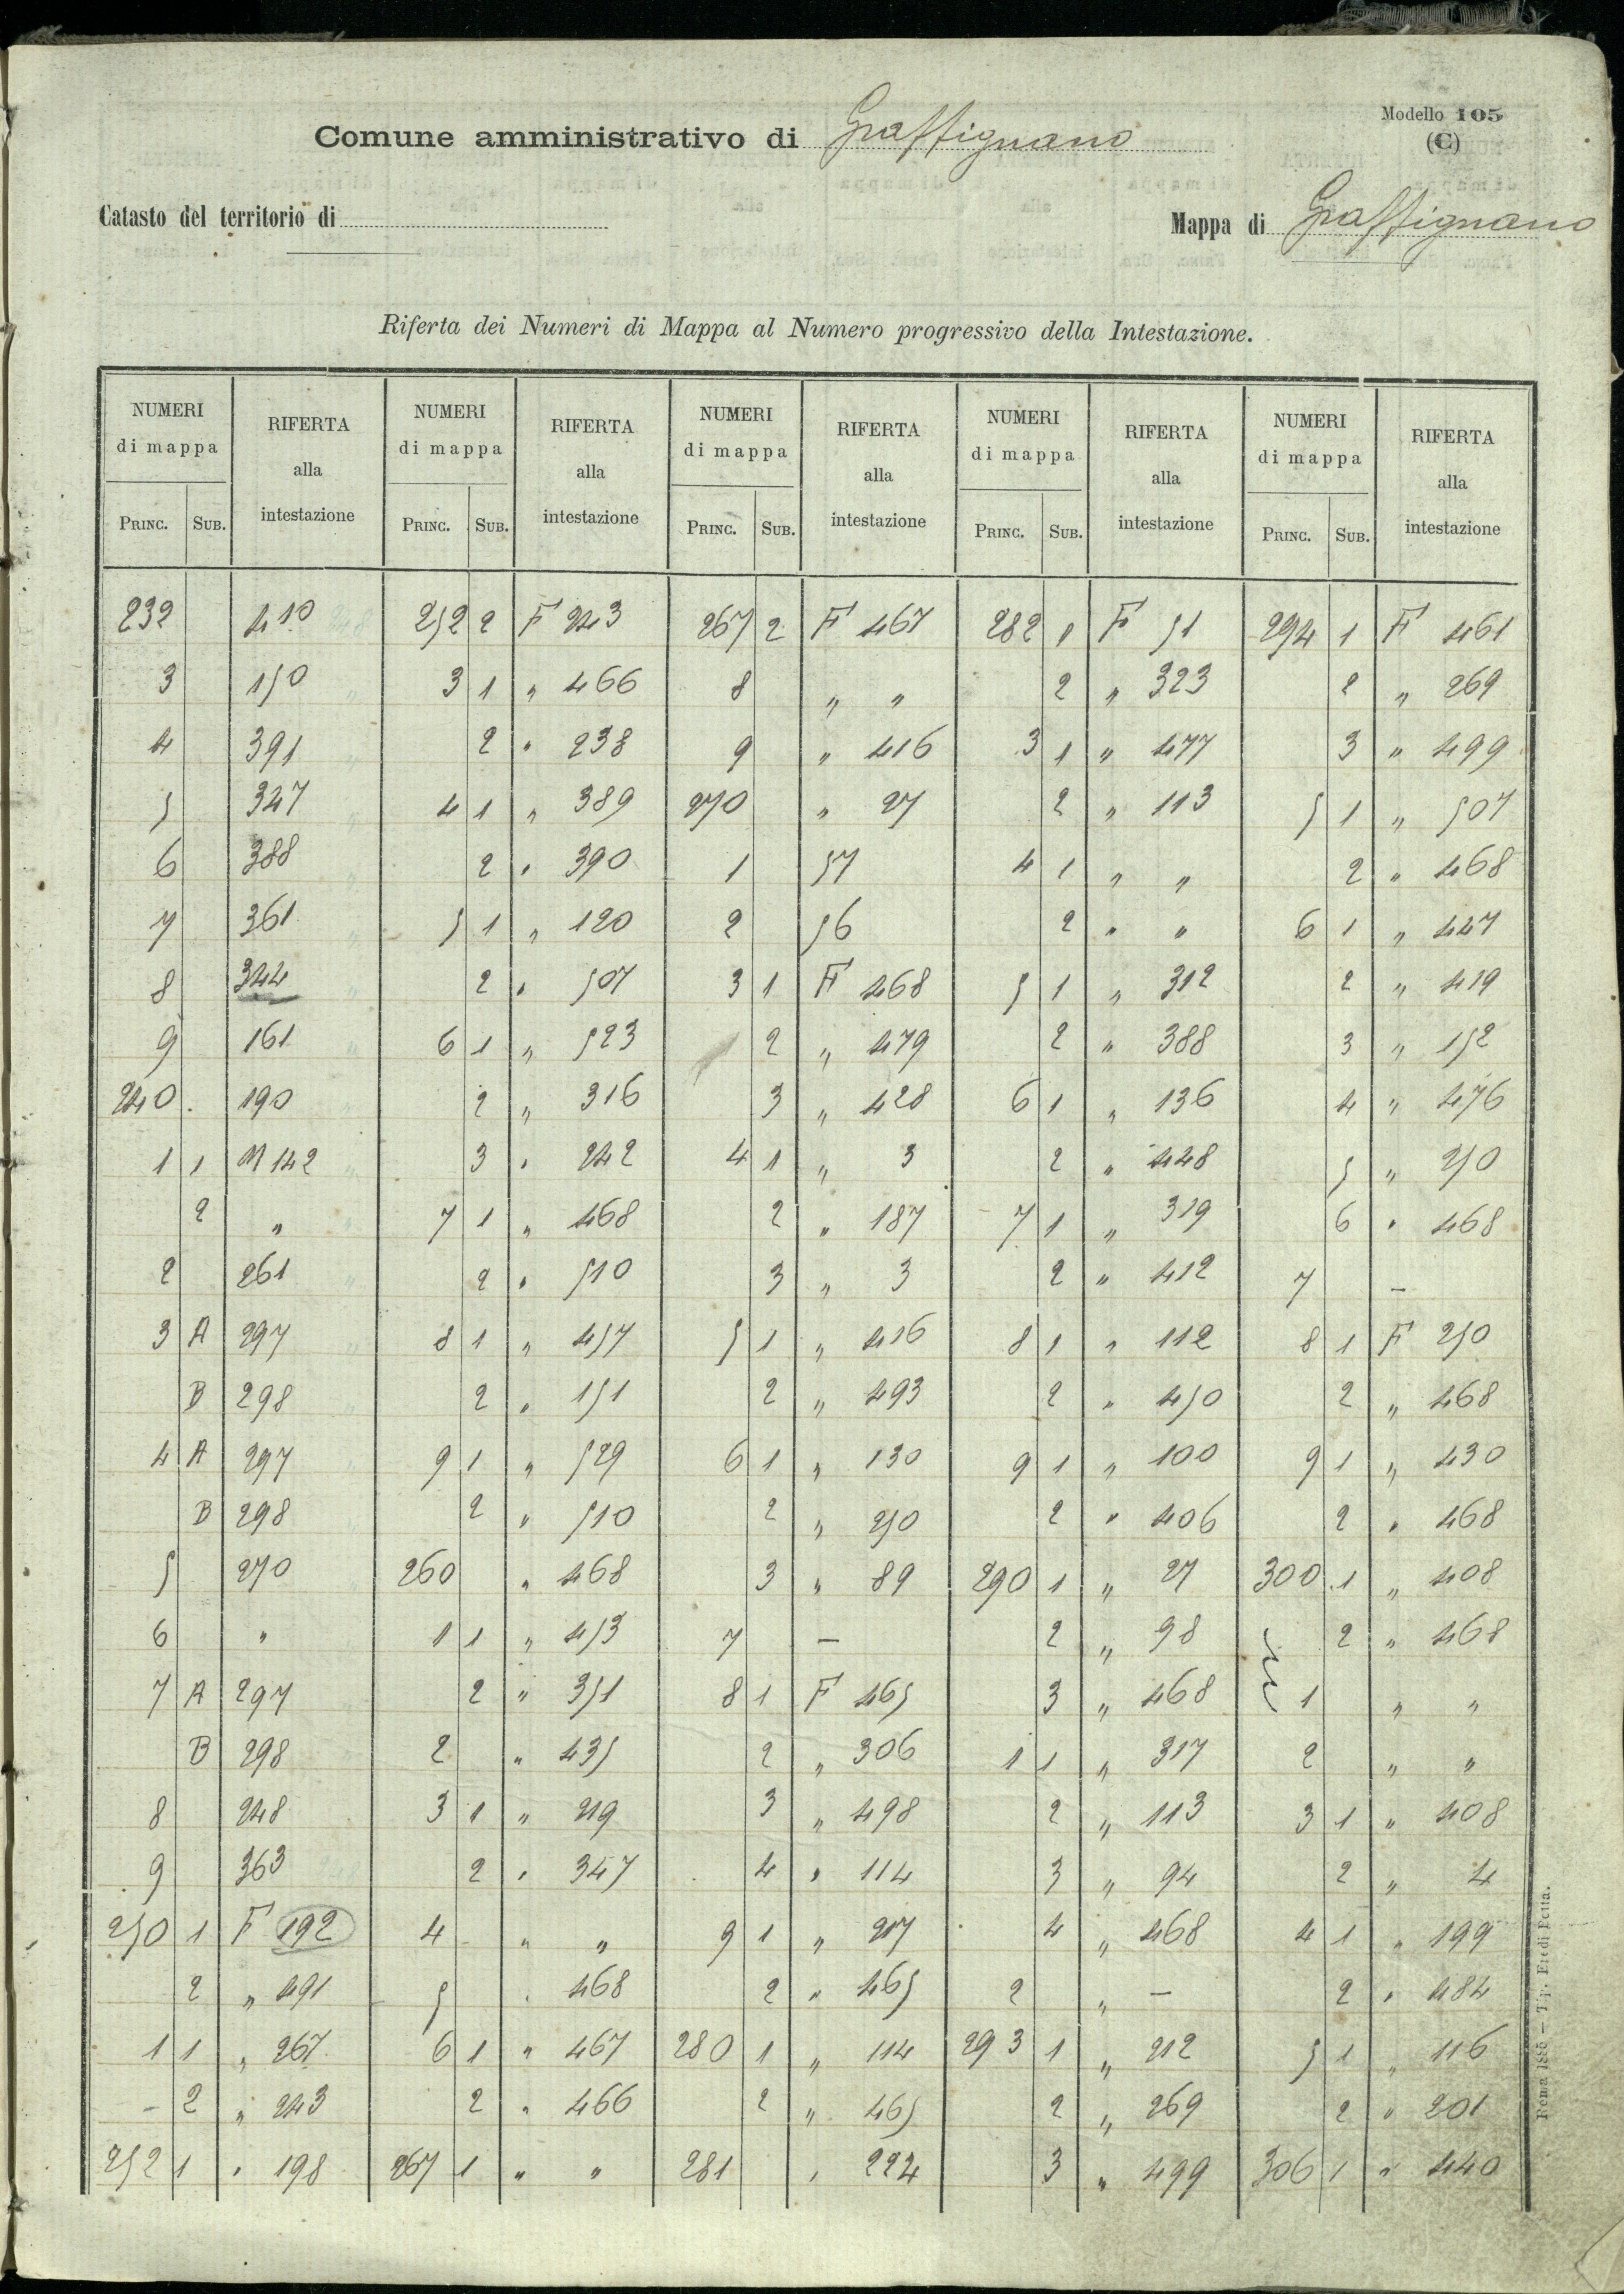 Modello 105
(C)
Comune amministrativo di Graffignano
Catasto del territorio di
Mappa di Graffignano
Riferta dei Numeri di Mappa al Numero progressivo della Intestazione.
NUMERI di mappa RIFERTA alla intestazione NUMERI di mappa RIFERTA alla intestazione NUMERI di mappa RIFERTA alla intestazione NUMERI di mappa RIFERTA alla intestazione NUMERI di mappa RIFERTA alla intestazione
PRINC. SUB. PRINC. SUB. PRINC. SUB. PRINC. SUB. PRINC. SUB.
232 410 252 2 F 243 267 2 F 467 282 1 F 51 294 1 F 461
3 150 3 1 " 466 8 " " 2 " 323 2 " 269
4 391 2 " 238 9 " 416 3 1 " 477 3 " 499
5 347 4 1 " 389 270 " 27 2 " 113 5 1 " 507
6 388 2 " 390 1 57 4 1 " " 2 " 468
7 361 5 1 " 120 2 56 2 " " 6 1 " 447
8 344 2 " 507 3 1 F 468 5 1 " 312 2 " 419
9 161 6 1 " 523 2 " 479 2 " 388 3 " 152
240 190 2 " 316 3 " 428 6 1 " 136 4 " 476
1 1 M 142 3 " 242 4 1 " 3 2 " 448 5 " 250
2 " 7 1 " 468 2 " 187 7 1 " 319 6 " 468
2 261 2 " 510 3 " 3 2 " 412 7 –
3 A 297 8 1 " 457 5 1 " 416 8 1 " 112 8 1 F 250
B 298 2 " 151 2 " 493 2 " 450 2 " 468
4 A 297 9 1 " 529 6 1 " 130 9 1 " 100 9 1 " 430
B 298 2 " 510 2 " 250 2 " 406 2 " 468
5 270 260 " 468 3 " 89 290 1 " 27 300 1 " 408
6 " 1 1 " 453 7 – 2 " 98 2 " 468
7 A 297 2 " 351 8 1 F 465 3 " 468 1 " "
B 298 2 " 435 2 " 306 1 1 " 317 2 " "
8 248 3 1 " 219 3 " 498 2 " 113 3 1 " 408
9 363 2 " 347 4 " 114 3 " 94 2 " 4
250 1 F 192 4 " " 9 1 " 217 4 " 468 4 1 " 199
2 " 491 5 " 468 2 " 465 2 " – 2 " 484
1 1 " 267 6 1 " 467 280 1 " 114 293 1 " 212 5 1 " 116
– 2 " 243 2 " 466 2 " 465 2 " 269 2 " 201
252 1 " 198 267 1 " " 281 " 224 3 " 499 306 1 " 440